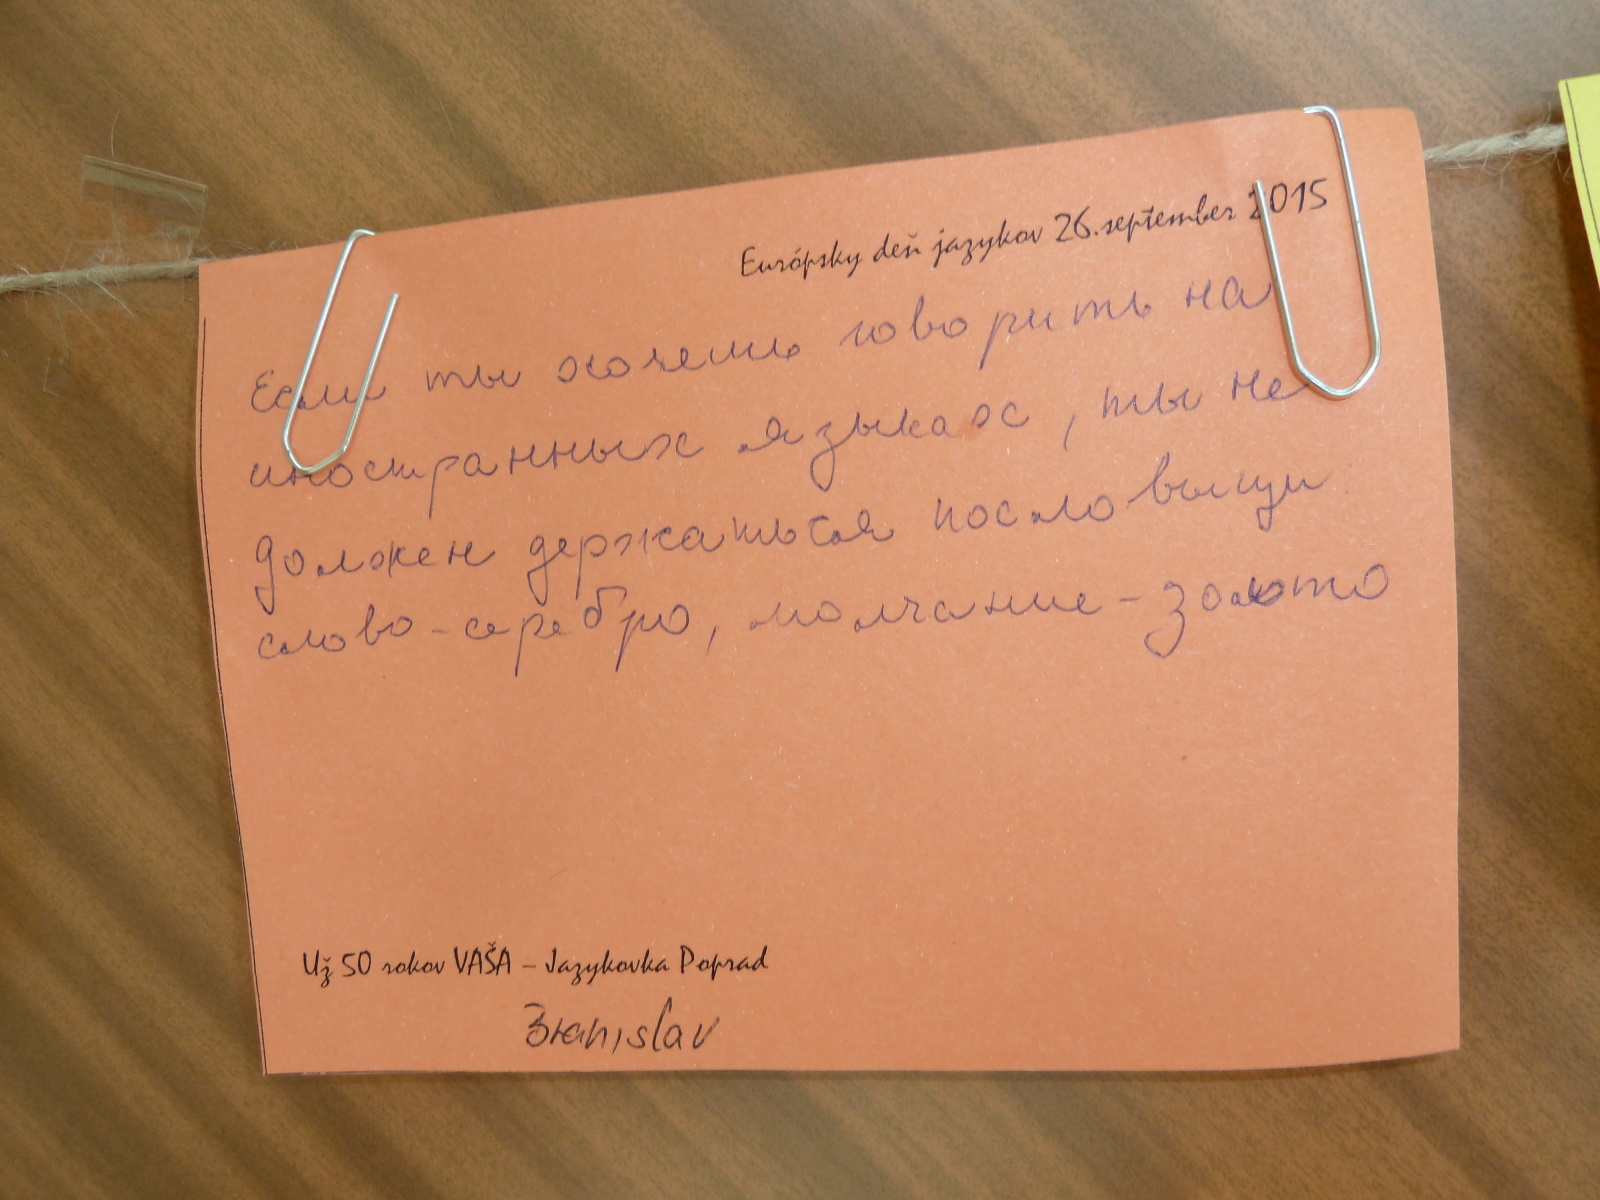 Európsky deň jazykov 26.september 2015
Если ты хочешь говорить на
иностранных языках, ты не
должен держаться пословыци
слово-серебро, молчание-золото
Už 50 rokov VAŠA – Jazykovka Poprad
Branislav